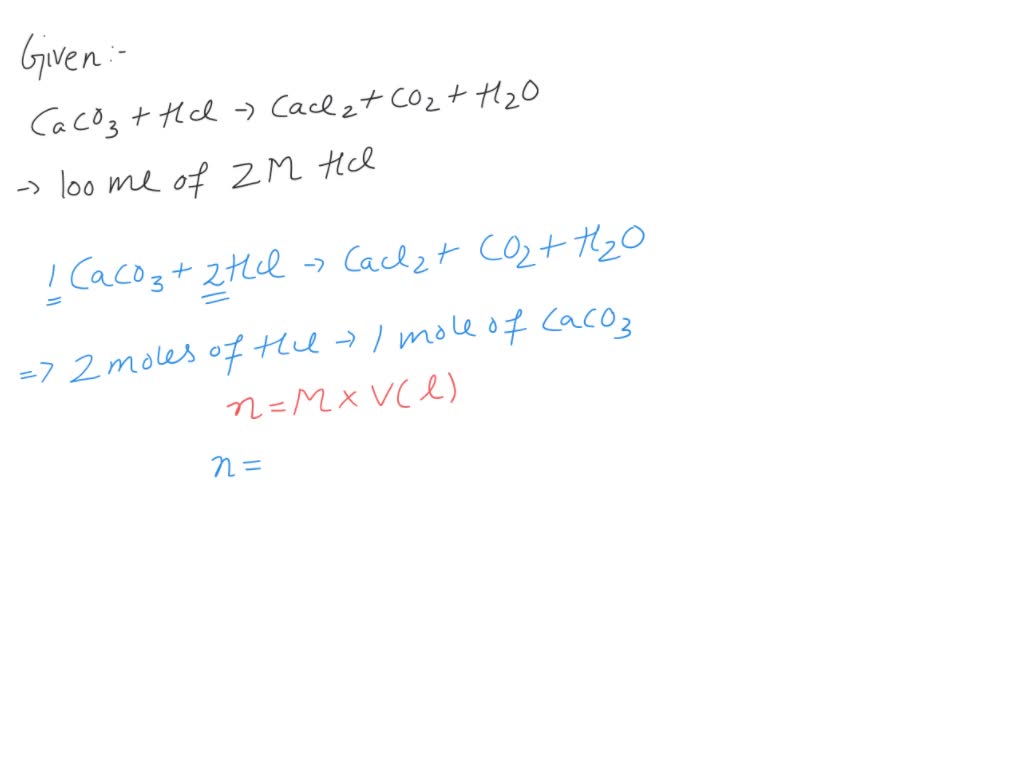 Given:-
CaCO3 + HCl -> CaCl2 + CO2 + H2O
-> 100 ml of 2M HCl
1 CaCO3 + 2HCl -> CaCl2 + CO2 + H2O
=> 2 moles of HCl -> 1 mole of CaCO3
n = M × V(l)
n =